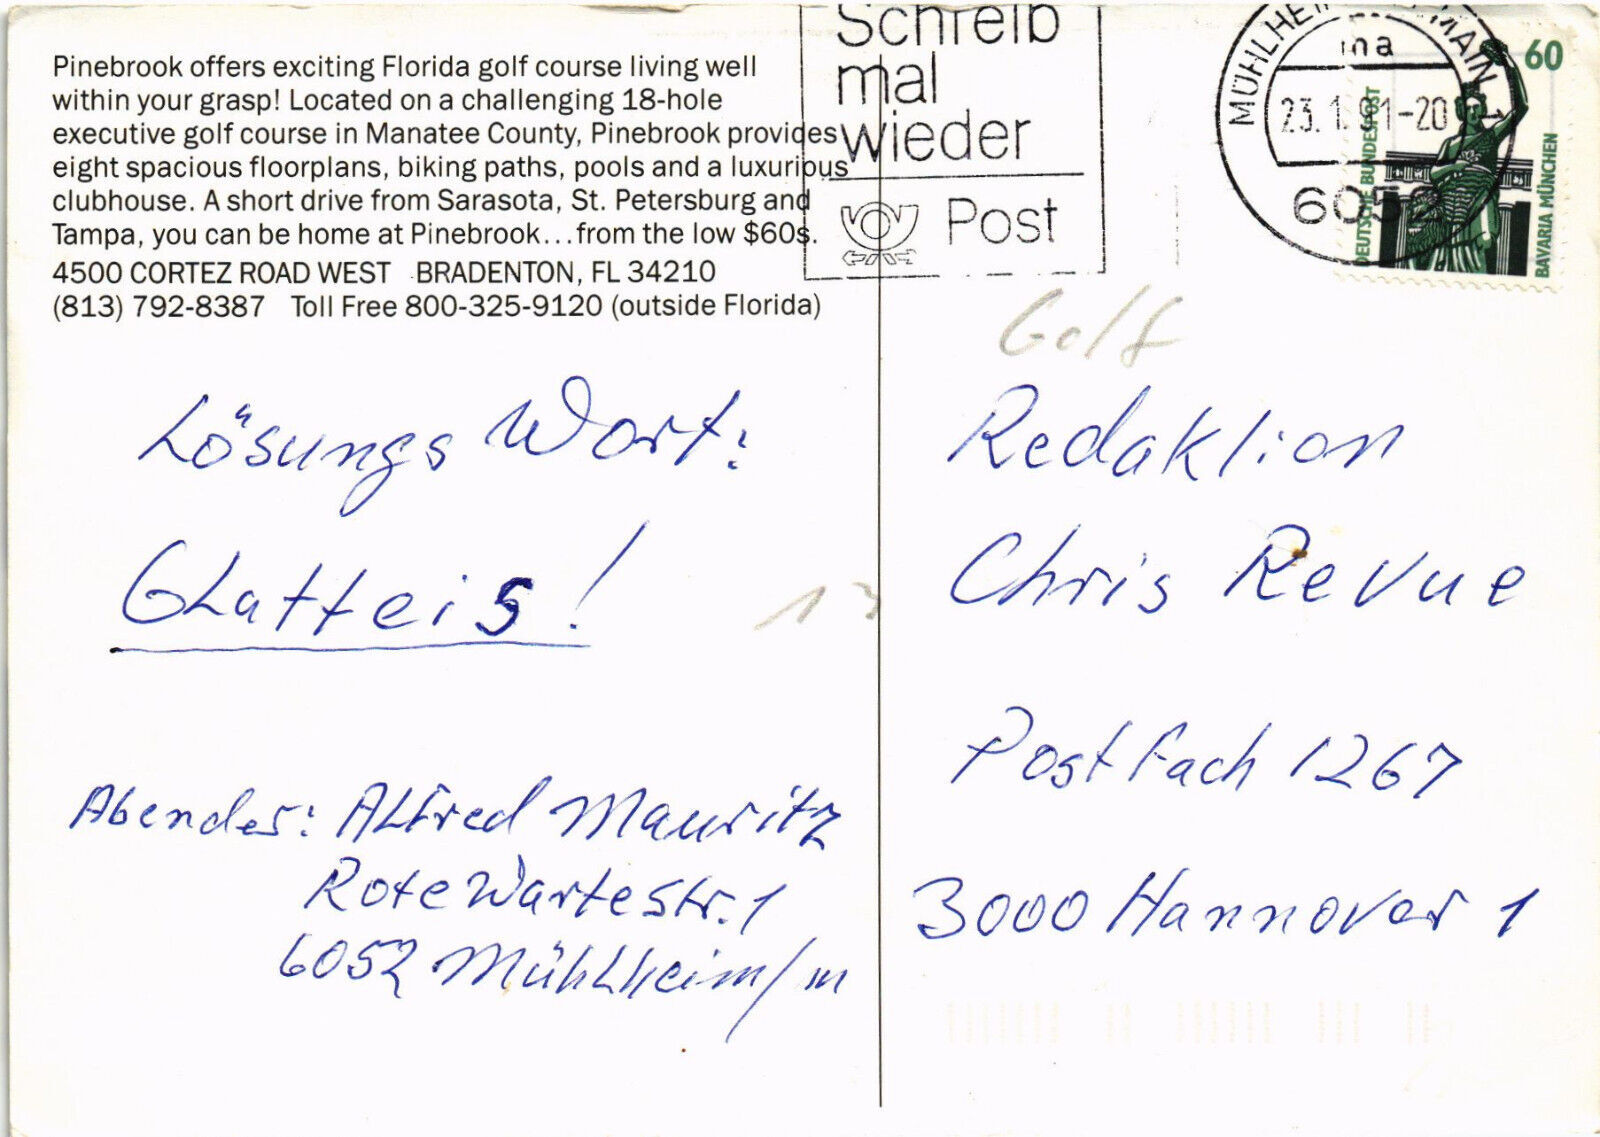 Pinebrook offers exciting Florida golf course living well
within your grasp! Located on a challenging 18-hole
executive golf course in Manatee County, Pinebrook provides
eight spacious floorplans, biking paths, pools and a luxurious
clubhouse. A short drive from Sarasota, St. Petersburg and
Tampa, you can be home at Pinebrook...from the low $60s.
4500 CORTEZ ROAD WEST BRADENTON, FL 34210
(813) 792-8387 Toll Free 800-325-9120 (outside Florida)
Schreib
mal
wieder
Post
MÜHLHEIM MAIN 1
ma
23.1.91-20
6052
60
DEUTSCHE BUNDESPOST
BAVARIA MÜNCHEN
Lösungs Wort:
GLatteis!
Abender: ALfred Mauritz
Rote Warte str. 1
6052 MÜHLheim/m
Golf
13
Redaktion
Chris Revue
Postfach 1267
3000 Hannover 1